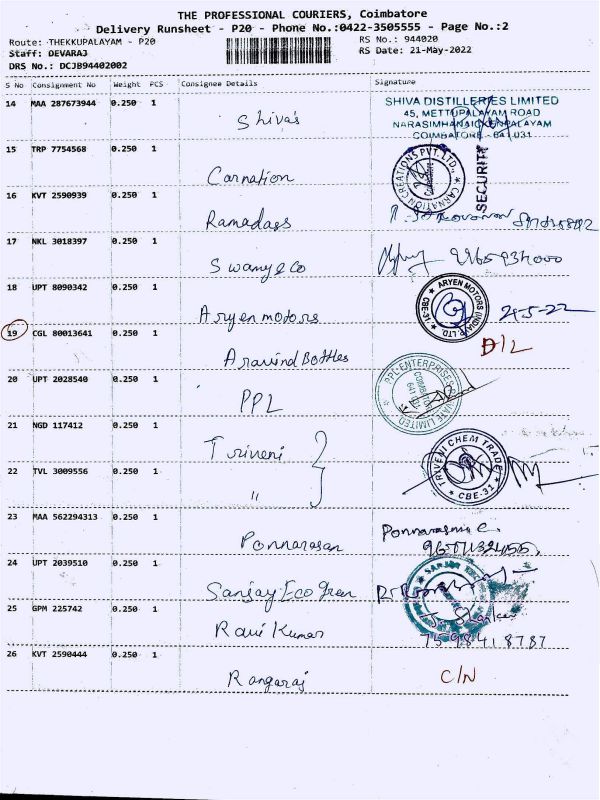 THE PROFESSIONAL COURIERS, Coimbatore
Delivery Runsheet - P20 - Phone No.:0422-3505555 - Page No.:2
Route: THEKKUPALAYAM - P20 RS No.: 944020
Staff: DEVARAJ RS Date: 21-May-2022
DRS No.: DCJB94402002
S No Consignment No Weight PCS Consignee Details Signature
14 MAA 287673944 0.250 1 Shiva's
SHIVA DISTILLERIES LIMITED
45, METTUPALAYAM ROAD
NARASIMHANAICKENPALAYAM
COIMBATORE - 641 031
15 TRP 7754568 0.250 1 Carnation
CARNATION CREATIONS PVT. LTD.,
SECURITY
16 KVT 2590939 0.250 1 Ramadass
17 NKL 3018397 0.250 1 Swamy & co
18 UPT 8090342 0.250 1 Aryen motors
ARYEN MOTORS (INDIA) P. LTD. CBE-31 21-5-22
19 CGL 80013641 0.250 1 Aravind Bottles D/L
20 UPT 2028540 0.250 1 PPL
PPL ENTERPRISES PRIVATE LIMITED
21 NGD 117412 0.250 1 Triveni
22 TVL 3009556 0.250 1 "
TRIVENI CHEM TRADE CBE-31
23 MAA 562294313 0.250 1 Ponnarasan
24 UPT 2039510 0.250 1 Sanjay Eco Green
25 GPM 225742 0.250 1 Ravi Kumar
7598418787
26 KVT 2590444 0.250 1 Rangaraj C/N